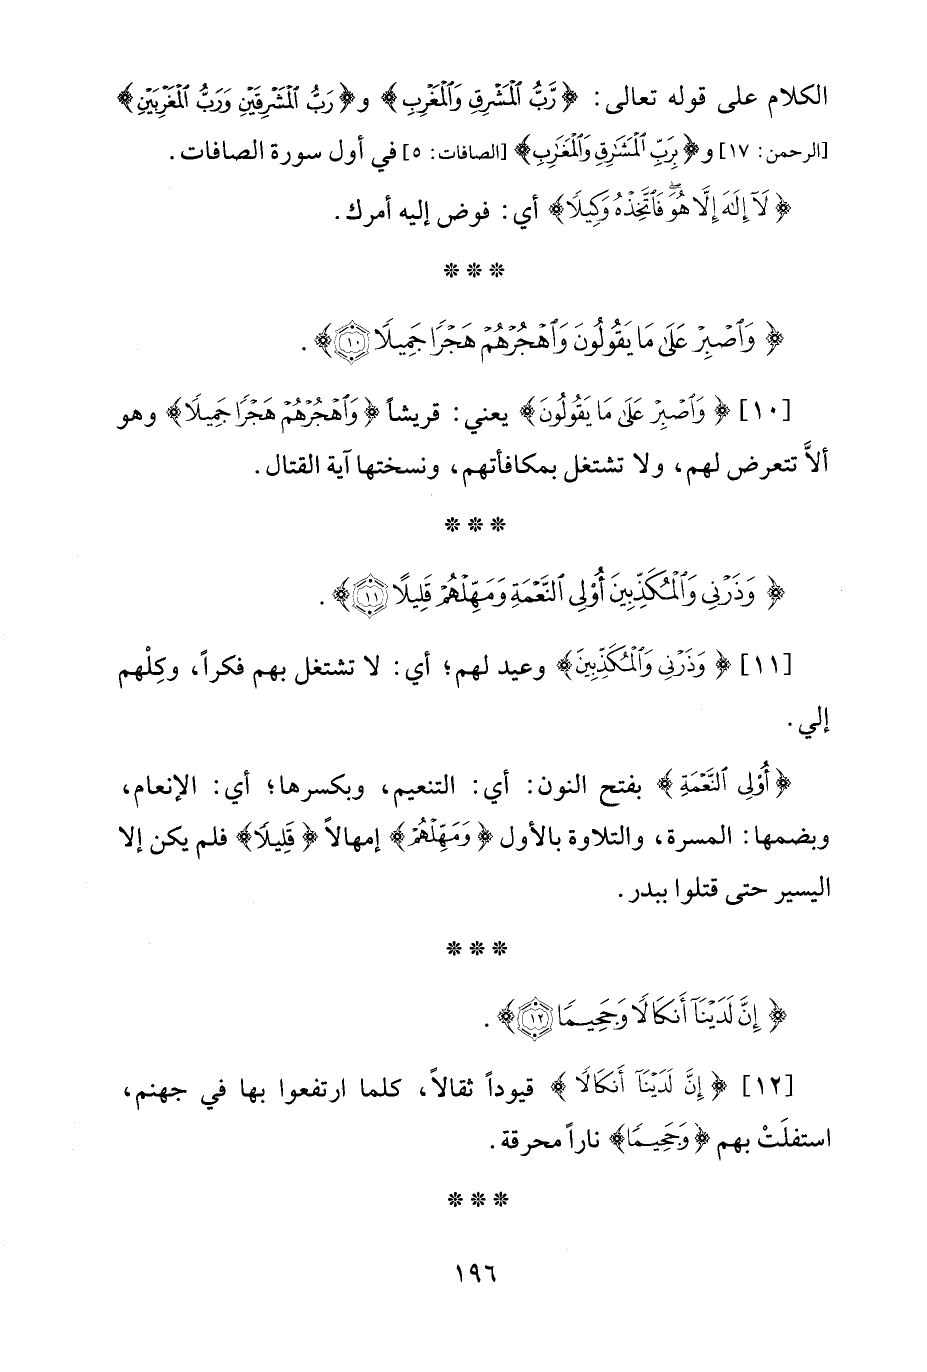 الكلام على قوله تعالى: ﴿رَّبُّ ٱلْمَشْرِقِ وَٱلْمَغْرِبِ﴾ و﴿رَبُّ ٱلْمَشْرِقَيْنِ وَرَبُّ ٱلْمَغْرِبَيْنِ﴾
[الرحمن: ١٧] و﴿بِرَبِّ ٱلْمَشَٰرِقِ وَٱلْمَغَٰرِبِ﴾ [الصافات: ٥] في أول سورة الصافات.
﴿لَآ إِلَٰهَ إِلَّا هُوَ فَٱتَّخِذْهُ وَكِيلًا﴾ أي: فوض إليه أمرك.
* * *
﴿وَٱصْبِرْ عَلَىٰ مَا يَقُولُونَ وَٱهْجُرْهُمْ هَجْرًا جَمِيلًا ١٠﴾.
[١٠] ﴿وَٱصْبِرْ عَلَىٰ مَا يَقُولُونَ﴾ يعني: قريشاً ﴿وَٱهْجُرْهُمْ هَجْرًا جَمِيلًا﴾ وهو
ألاَّ تتعرض لهم، ولا تشتغل بمكافأتهم، ونسختها آية القتال.
* * *
﴿وَذَرْنِي وَٱلْمُكَذِّبِينَ أُوْلِي ٱلنَّعْمَةِ وَمَهِّلْهُمْ قَلِيلًا ١١﴾.
[١١] ﴿وَذَرْنِي وَٱلْمُكَذِّبِينَ﴾ وعيد لهم؛ أي: لا تشتغل بهم فكراً، وكِلْهم
إلي.
﴿أُوْلِي ٱلنَّعْمَةِ﴾ بفتح النون: أي: التنعيم، وبكسرها؛ أي: الإنعام،
وبضمها: المسرة، والتلاوة بالأول ﴿وَمَهِّلْهُمْ﴾ إمهالاً ﴿قَلِيلًا﴾ فلم يكن إلا
اليسير حتى قتلوا ببدر.
* * *
﴿إِنَّ لَدَيْنَآ أَنكَالًا وَجَحِيمًا ١٢﴾.
[١٢] ﴿إِنَّ لَدَيْنَآ أَنكَالًا﴾ قيوداً ثقالاً، كلما ارتفعوا بها في جهنم،
استفلَتْ بهم ﴿وَجَحِيمًا﴾ ناراً محرقة.
* * *
١٩٦